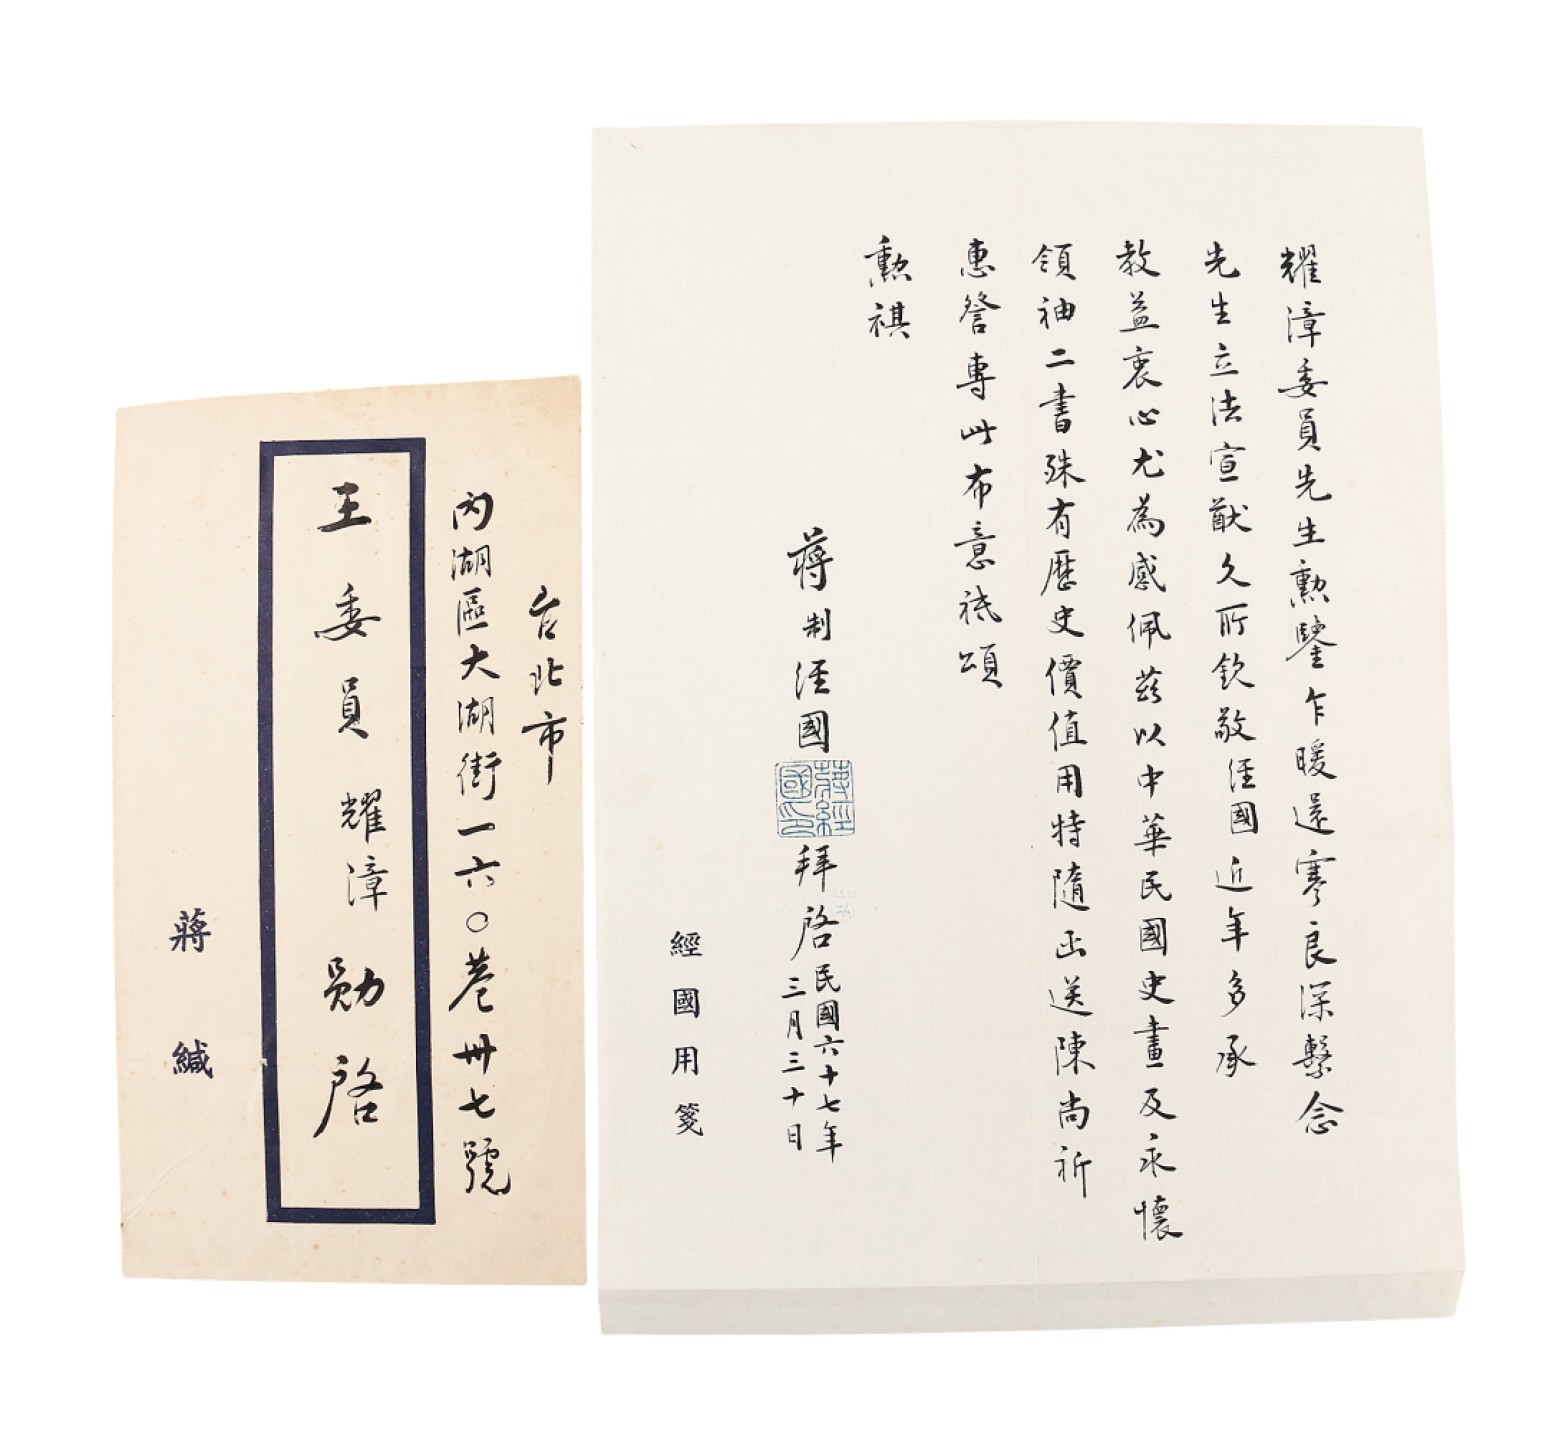 耀漳委員先生勳鑒乍暖還寒良深繫念
先生立法宣猷久所欽敬經國近年多承
教益衷心尤為感佩茲以中華民國史畫及永懷
領袖二書殊有歷史價值用特隨函送陳尚祈
惠詧專此布意祗頌
勳祺
蔣制經國
蔣經國印
拜啓
民國六十七年
三月三十日
經國用箋
台北市
內湖區大湖街一六〇巷卅七號
王委員耀漳勛啓
蔣緘